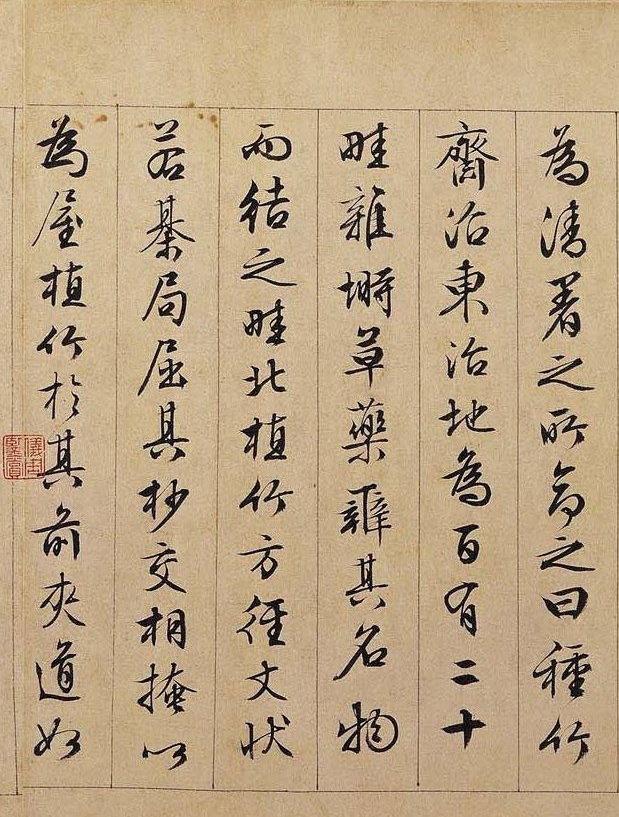 為清暑之所命之曰種竹
齋沼東治地為百有二十
畦雜塒草藥辨其名物
而結之畦北植竹方徑丈狀
若棊局屈其杪交相掩以
為屋植竹於其前夾道如
儀周鑒賞